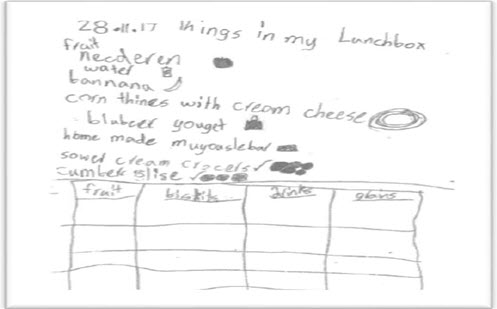 28.11.17 things in my Lunchbox
fruit
necderen
water
bannana
corn thines with cream cheese
blubeer youget
home made muyouslebar
sower cream cracels
cumber slise
fruit biskits drinks grains